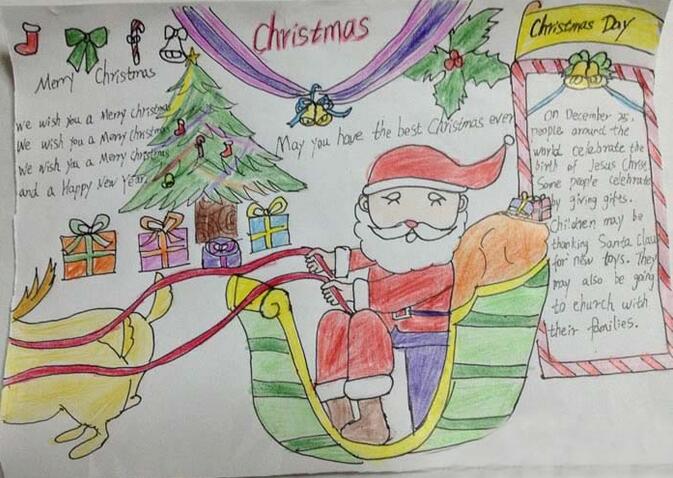 Christmas
Christmas Day
Merry Christmas
We wish you a Merry christmas
We wish you a Merry Christmas
We wish you a Merry Christmas
and a Happy New Year
May you have the best Christmas ever
On December 25,
people around the
world celebrate the
birth of Jesus Christ.
Some people celebrate
by giving gifts.
Children may be
thanking Santa Claus
for new toys. They
may also be going
to church with
their families.